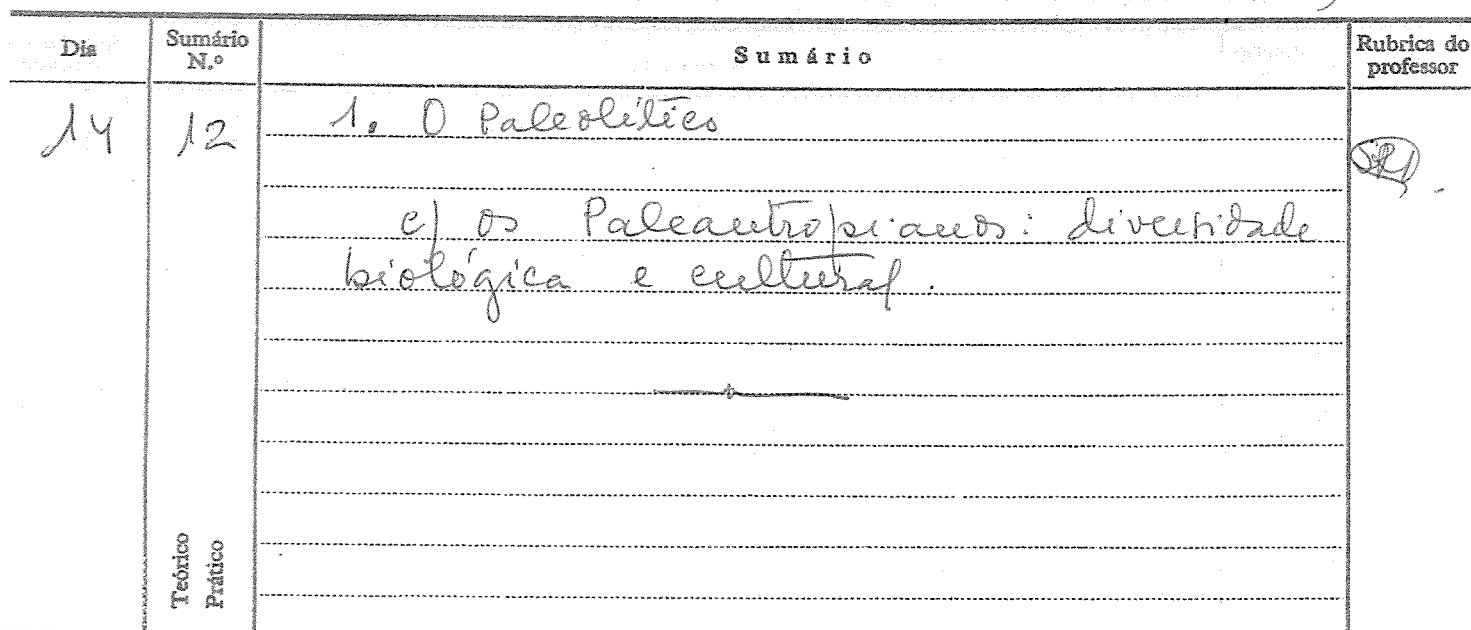 Dia
Sumário N.º
Sumário
Rubrica do professor
14
12
1. O Paleolítico
c) os Paleantropianos: diversidade
biológica e cultural.
Teórico
Prático